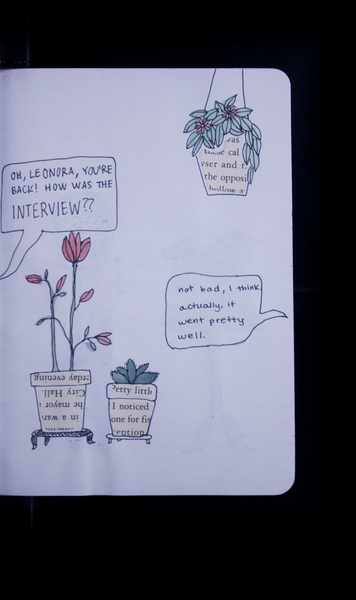 was
cal
and
the opposi
hollow a
OH, LEONORA, YOU'RE
BACK! HOW WAS THE
INTERVIEW??
not bad, I think,
actually. it
went pretty
well.
rday evening
City Hall.
he mayor
in a wa
Petty little
I noticed
one for fis
ception